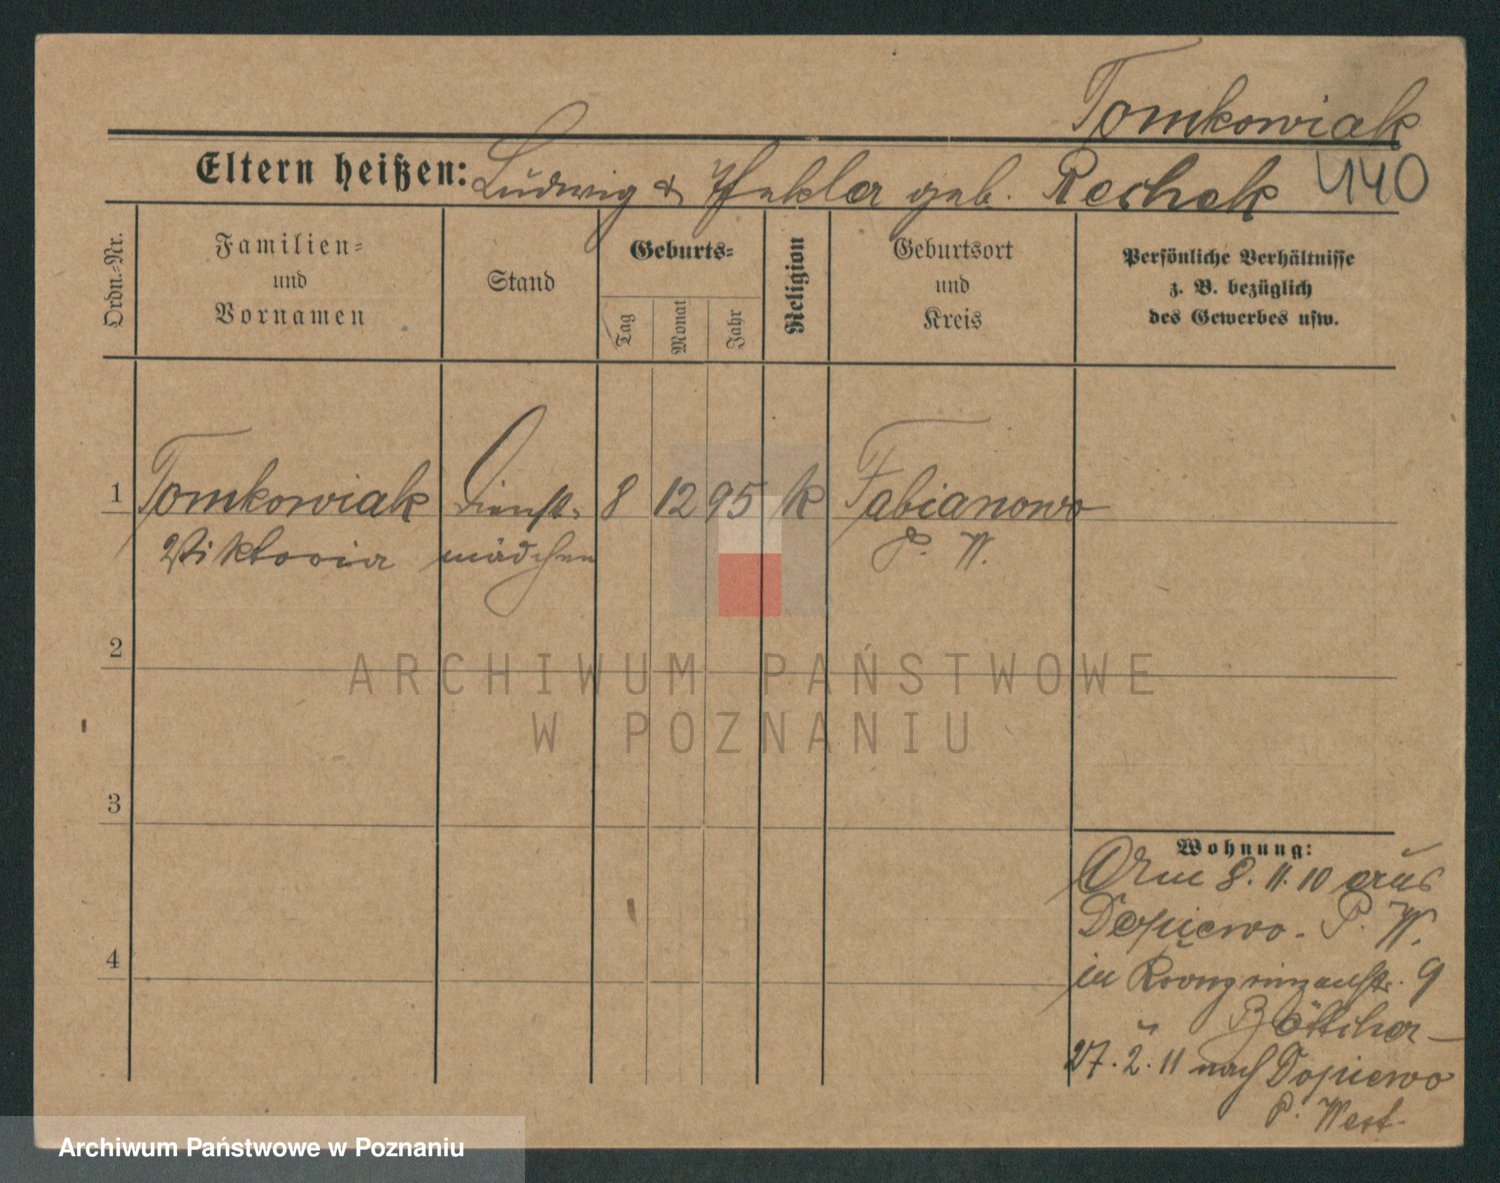 Tomkowiak
Eltern heißen: Ludwig & Thekla geb. Reshek
440
Ordn.-Nr.
Familien-
und
Vornamen
Stand
Geburts-
Tag
Monat
Jahr
Religion
Geburtsort
und
Kreis
Persönliche Verhältnisse
z. B. bezüglich
des Gewerbes usw.
1 Tomkowiak Dienst- 8 12 95 k Fabianowo
Viktoria mädchen P. W.
2
3
4
Wohnung:
Am 8. 11. 10 aus
Dopiewo. P. W.
in Kronprinzenstr. 9
Böttcher
27. 2. 11 nach Dopiewo
P. West.
ARCHIWUM PAŃSTWOWE
W POZNANIU
Archiwum Państwowe w Poznaniu